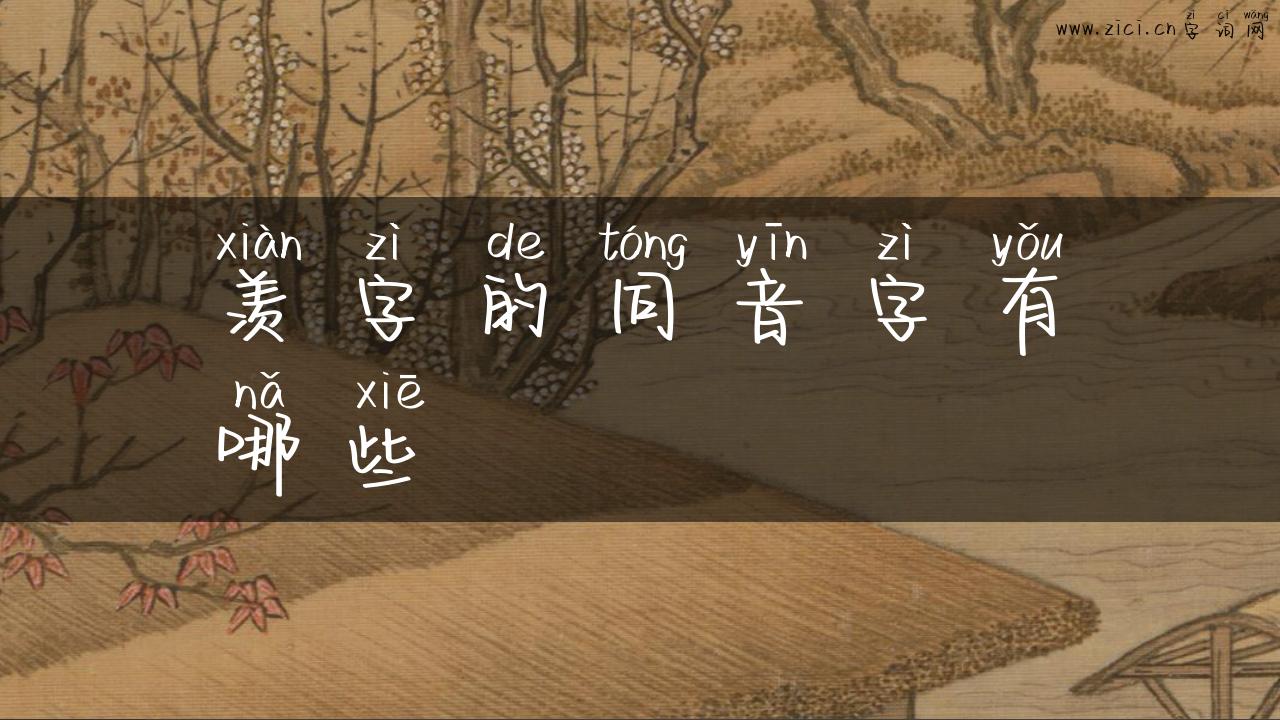 zì cí wǎng
www.zici.cn字词网
xiàn zì de tóng yīn zì yǒu
羡字的同音字有
nǎ xiē
哪些